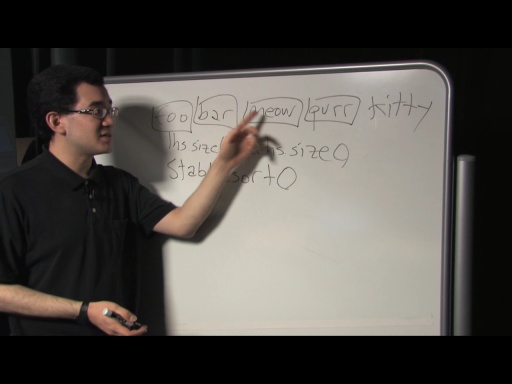 foo bar meow purr kitty
lhs size rhs size()
stable sort()